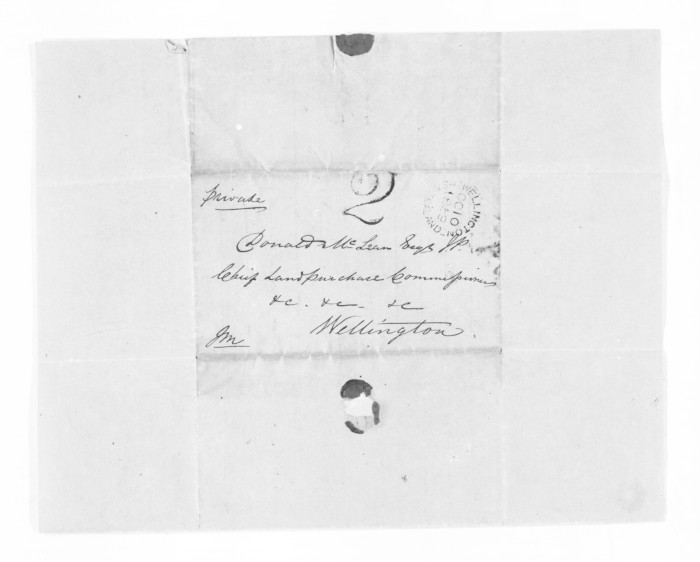 private
2
WELLINGTON
Donald McLean Esqr J.P.
Chief Land purchase Commissioner
&c. &c. &c
Wellington.